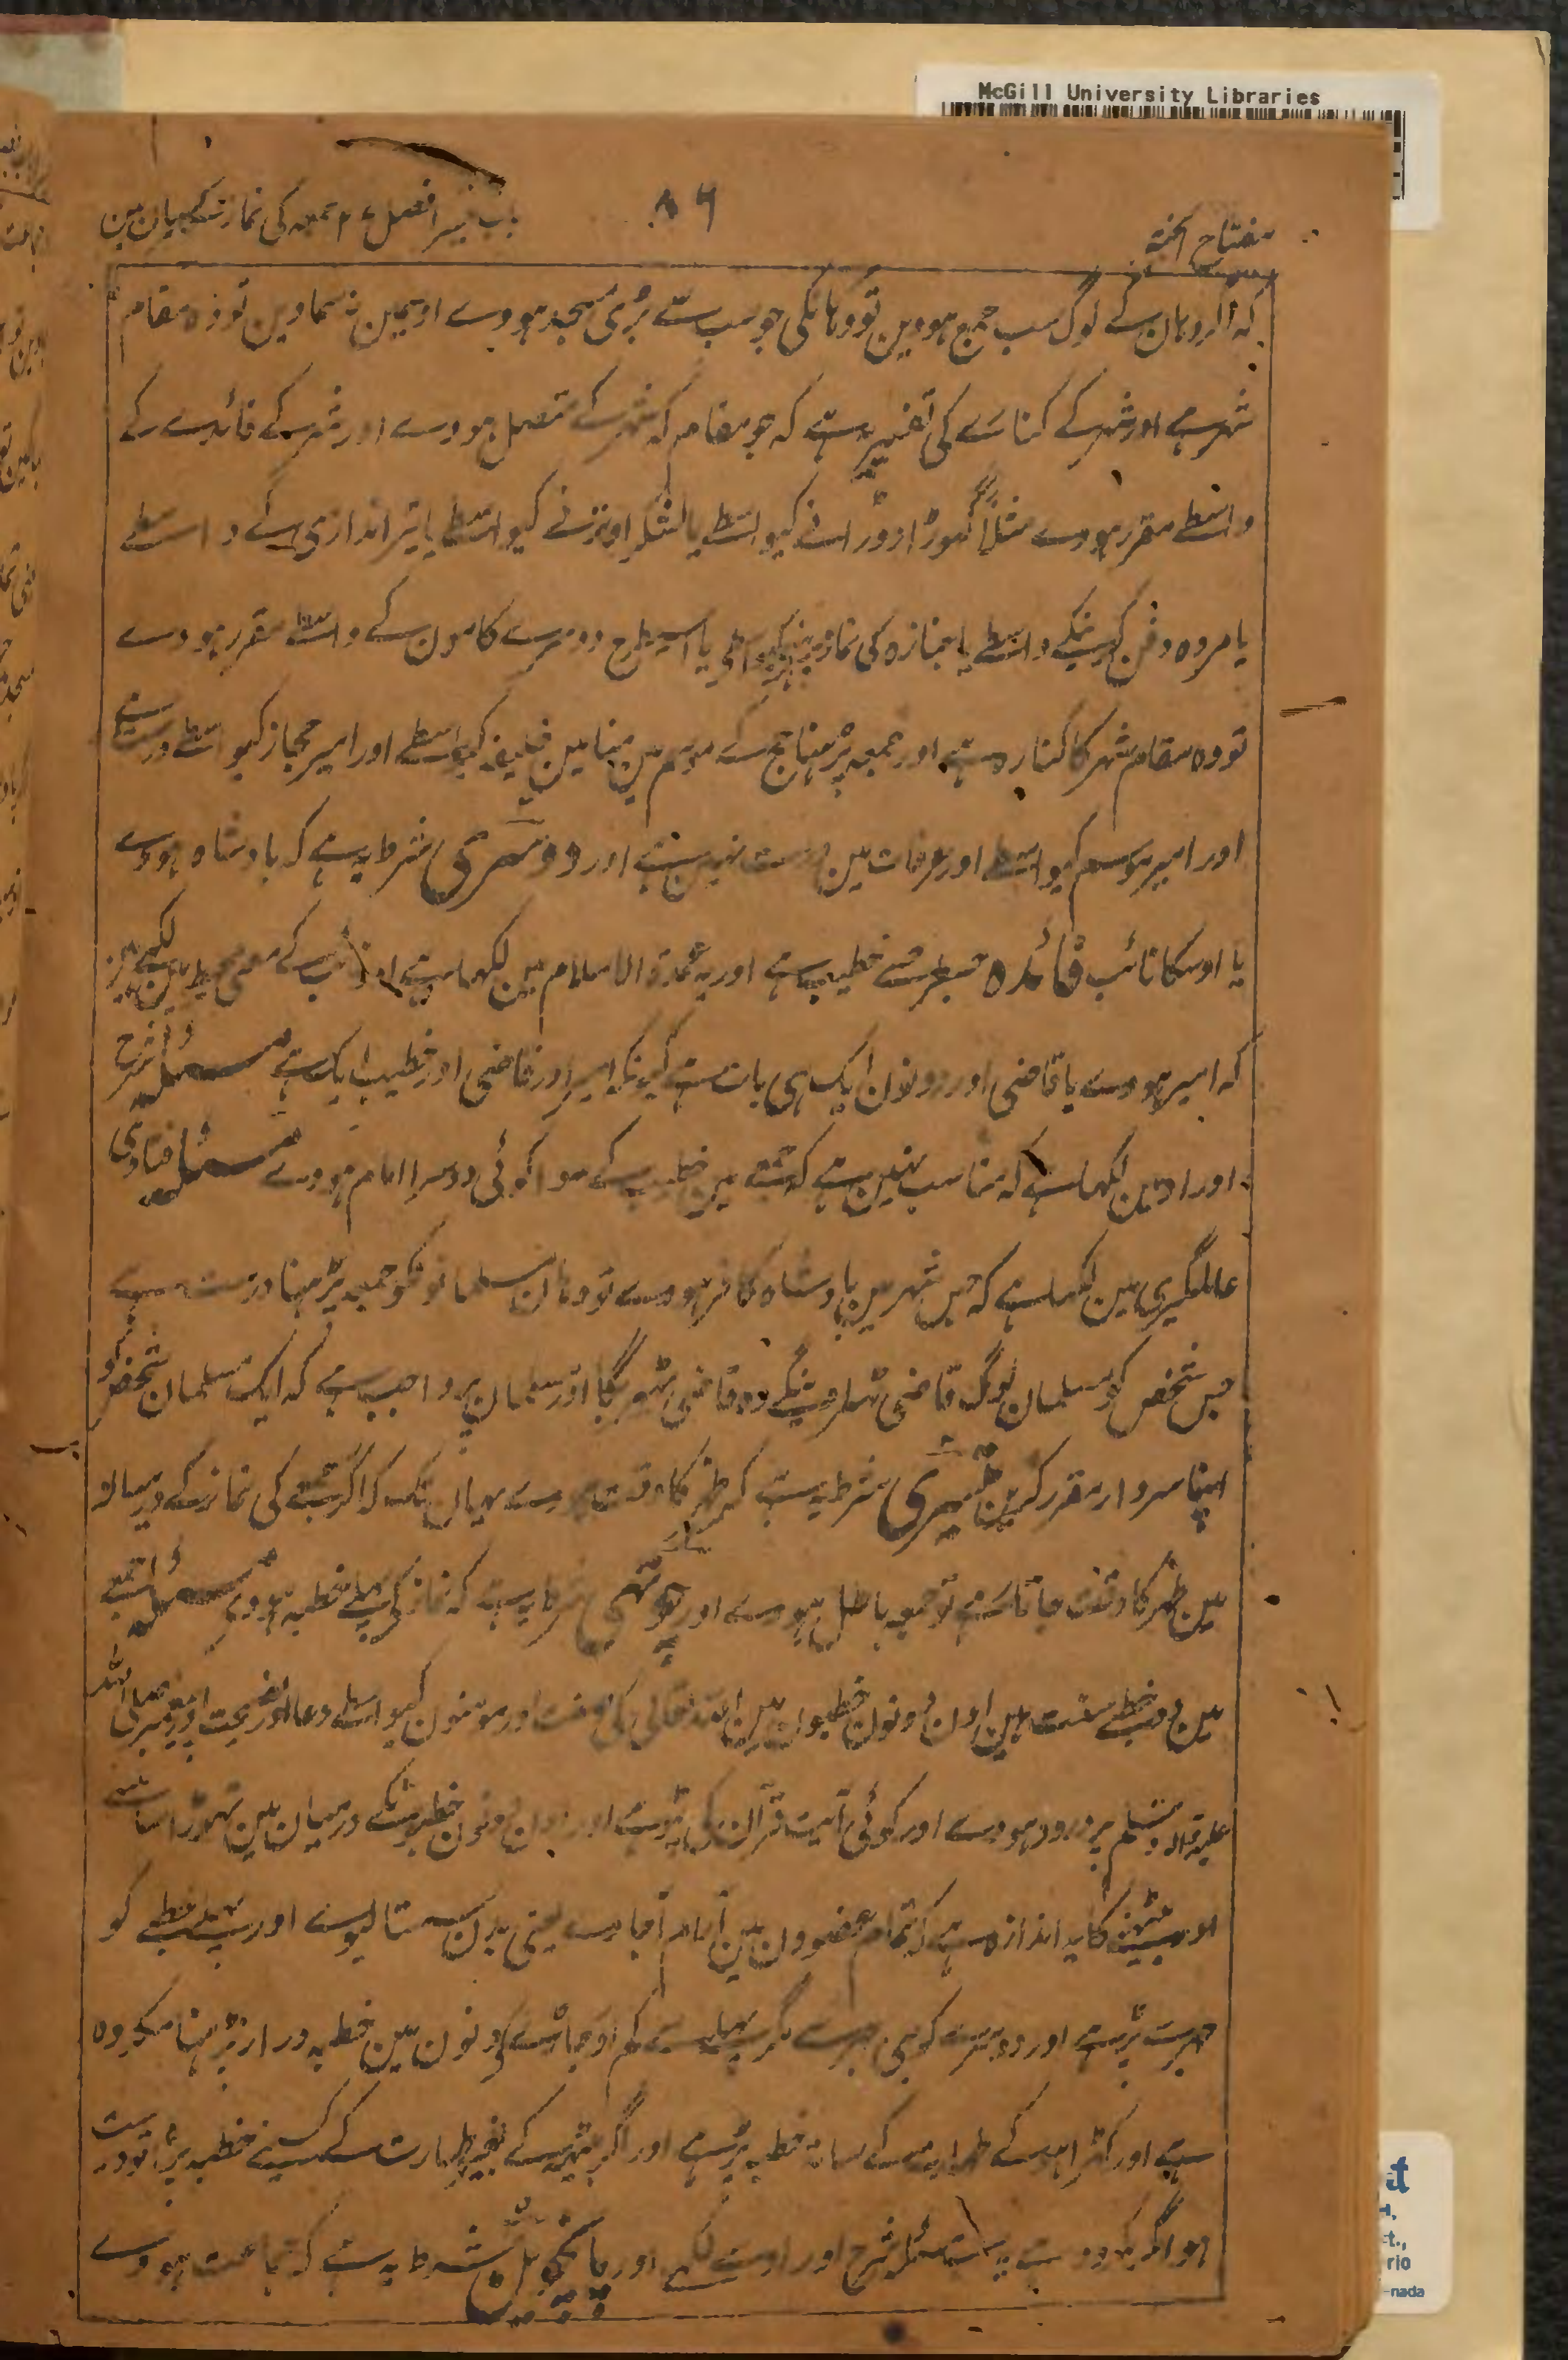 McGill University Libraries
مفتاح الجنة
۸۶
باب تیسرا فصل ۶ جمعہ کی نماز کے بیان مین
کہ اگر وہان کے لوگ سب جمع ہووین تو وہانکی جو سب سے بڑی مسجد ہووے اوسمین نہ سماوین تو وہ مقام
شہر ہے اور شہر کے کنارے کی تفسیر یہ ہے کہ جو مقام کہ شہر کے متصل ہووے اور شہر کے فائدے کے
واسطے مقرر ہووے مثلاً گھوڑا دوڑانے کیواسطے یا لشکر اوترنے کیواسطے یا تیر اندازی کے واسطے
یا مردہ دفن کرنیکے واسطے یا جنازہ کی نماز پڑہنے کیواسطے یا اسیطرح دوسرے کامون کے واسطے مقرر ہووے
تو وہ مقام شہر کا کنارہ ہے اور جمعہ پڑہنا حج کے موسم مین منا مین خلیفہ کیواسطے اور امیر حجاز کیواسطے درست ہے
اور امیر موسم کیواسطے اور عرفات مین درست نہین ہے اور دوسری شرط یہ ہے کہ بادشاہ ہووے
یا اوسکا نائب فائدہ جسطرح سے خطیب ہے اور یہ عمدۃ الاسلام مین لکھا ہے اور نائب کے معنی محیط مین لکھے ہین
کہ امیر ہووے یا قاضی اور دونون ایک ہی بات ہے کیونکہ امیر اور قاضی اور خطیب ایک ہے مسئلہ شرح
اوراد مین لکھا ہے کہ مناسب نہین ہے کہ جمعے مین خطیب کے سوا کوئی دوسرا امام ہووے مسئلہ فتاوی
عالمگیری مین لکھا ہے کہ جس شہر مین بادشاہ کافر ہووے تو وہان مسلمانونکو جمعہ پڑہنا درست ہے
جس شخص کو مسلمان لوگ قاضی ٹھراوینگے وہ قاضی ٹھریگا اور مسلمان پر واجب ہے کہ ایک مسلمان شخص کو
اپنا سردار مقرر کرین تیسری شرط یہ ہے کہ ظہر کا وقت ہووے یہان تک کہ اگر جمعے کی نماز کے درمیان
مین ظہر کا وقت جاتا رہے تو جمعہ باطل ہووے اور چوتھی شرط یہ ہے کہ نماز کے پہلے خطبہ ہووے مسئلہ جمعے
مین دو خطبے سنت ہین اون دونون خطبون مین اللہ تعالی کی اور مومنون کیواسطے دعا اور نصیحت اور پیغمبر صلی اللہ
علیہ و آلہ وسلم پر درود ہووے اور کوئی آیت قرآن کی پڑہے اور اون دونون خطبونکے درمیان مین تھوڑا سا
اور بیٹھنے کا یہ اندازہ ہے کہ تمام عضوون مین آرام آجاوے یعنی بدن سستا لیوے اور پہلے خطبے کو
جہر سے پڑہے اور دوسرے کو بھی جہر سے مگر پہلے سے کم اور جاڑے کے دنون مین خطبہ دراز پڑہنا مکروہ
ہے اور کھڑا ہو کے طہارت کے ساتھ خطبہ پڑہے اور اگر بیٹھہ کے بغیر طہارت کے کسینے خطبہ پڑہا تو درست
ہوا مگر مکروہ ہے یہ مسئلہ شرح اوراد مین لکھا ہے اور پانچوین شرط یہ ہے کہ جماعت ہووے